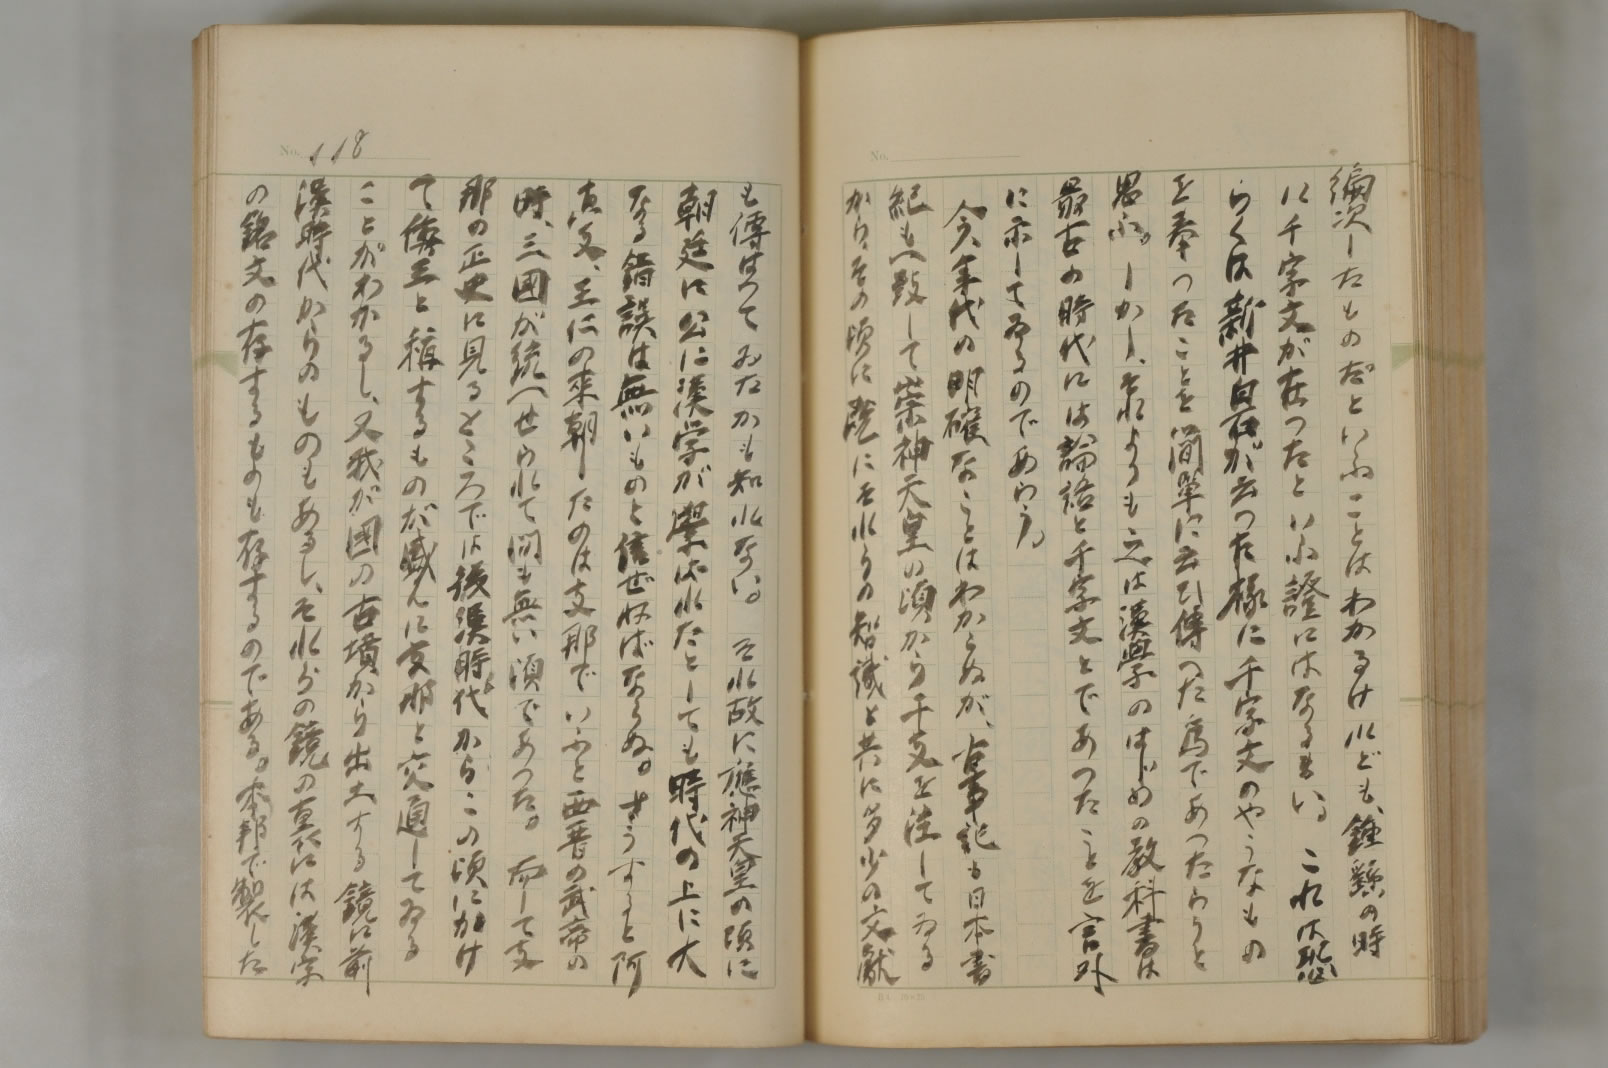 編次したものだといふことはわかるけれども、鍾繇の時
に千字文が在つたといふ證にはならない。これは恐
らくは新井白石が云つた様に千字文のやうなもの
を奉つたことを簡單に云ひ傳つた為であつたらうと
思ふ。しかし、それよりも之は漢學のはじめの教科書は
最古の時代には論語と千字文とであつたことを言外
に示してゐるのであらう。
今、年代の明確なことはわからぬが、古事記も日本書
紀も一致して崇神天皇の頃から干支を注してゐる
から、その頃に既にそれらの知識と共に多少の文獻
No. 118
も傳はつてゐたかも知れない。それ故に應神天皇の頃に
朝廷に公に漢学が學ばれたとしても時代の上に大
なる錯誤は無いものと信ぜねばならぬ。さうすると阿
直支、王仁の來朝したのは支那でいふと西晋の武帝の
時、三國が統一せられて間も無い頃であつた。而して支
那の正史に見るところでは後漢時代からこの頃にかけ
て倭王と稱するものが盛んに支那と交通してゐる
ことがわかるし、又我が國の古墳から出土する鏡に前
漢時代からのものもあるし、それらの鏡の裏には漢字
の銘文の存するものも存するのである。本邦で製した
No.